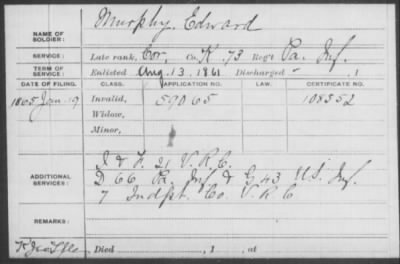 NAME OF SOLDIER: Murphy, Edward
SERVICE: Late rank, Cor, Co. K, 73 Reg't Pa. Inf.
TERM OF SERVICE: Enlisted Aug. 13, 1861 Discharged - , 1
DATE OF FILING. CLASS. APPLICATION NO. LAW. CERTIFICATE NO.
1865 Jan. 19 Invalid, 59065 108352
Widow,
Minor,
ADDITIONAL SERVICES: I & F. 21 V.R.C.
D 66 Pa. Inf & G 43 U.S. Inf.
7 Indpt. Co. V.R.C
REMARKS:
Died , 1 , at